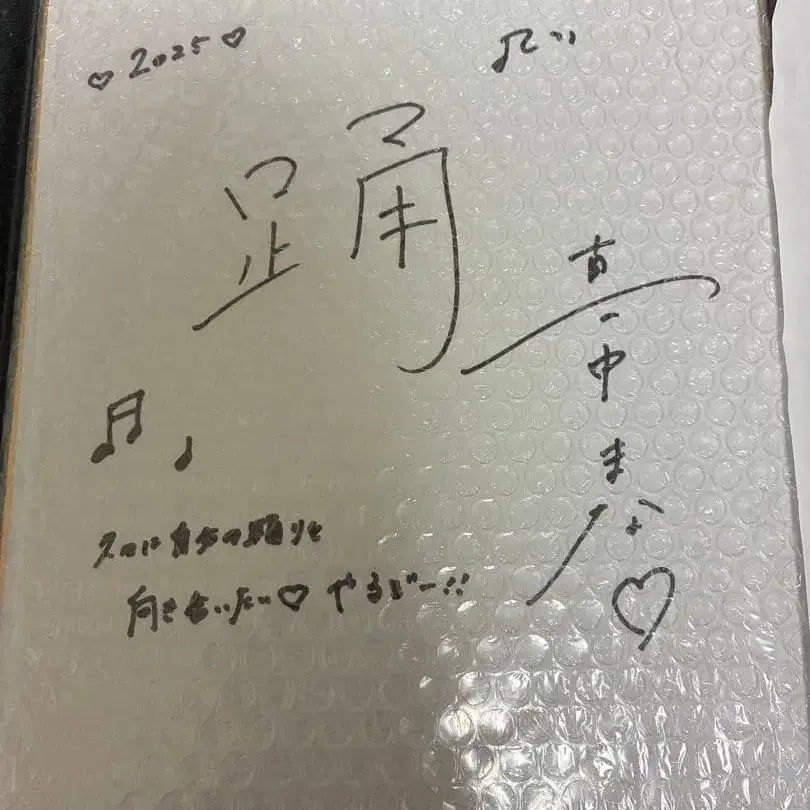 ♡2025♡
踊
真中まな♡
自分の踊りと
向き合いたい♡ やるぞー!!